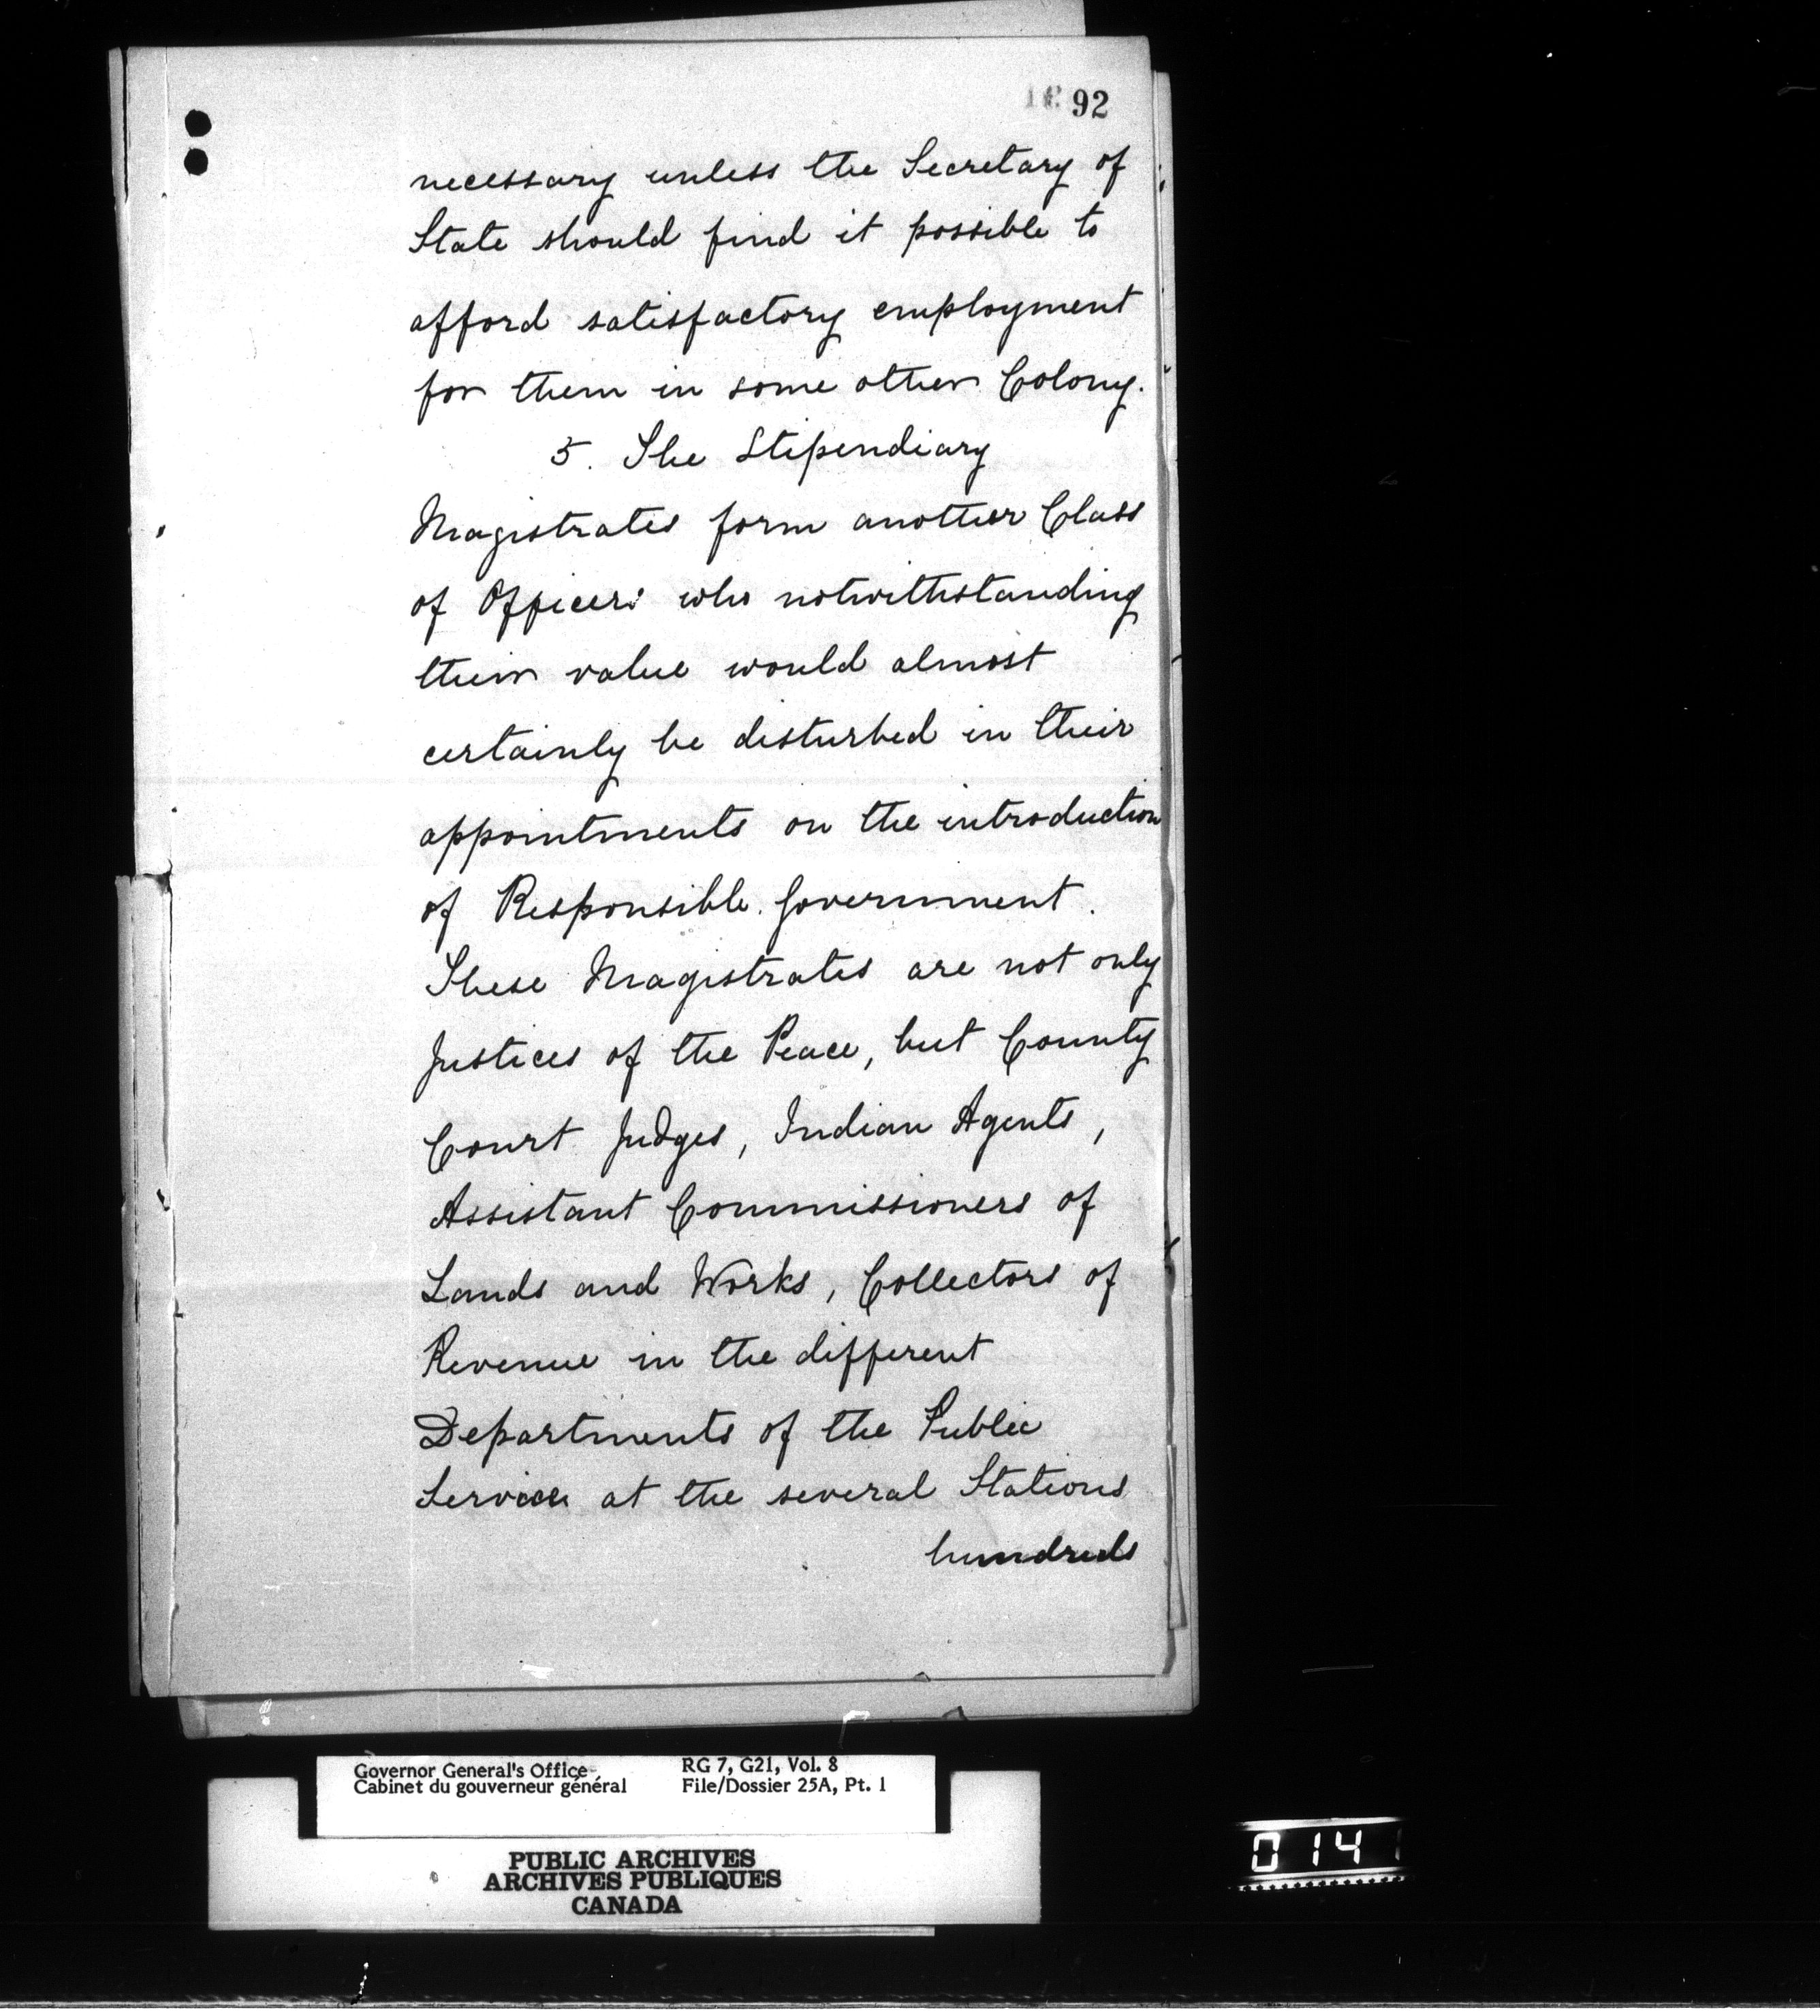 92
necessary unless the Secretary of
State should find it possible to
afford satisfactory employment
for them in some other Colony.
5. The Stipendiary
Magistrates form another Class
of Officers who notwithstanding
their value would almost
certainly be disturbed in their
appointments on the introduction
of Responsible Government.
These Magistrates are not only
Justices of the Peace, but County
Court Judges, Indian Agents,
Assistant Commissioners of
Lands and Works, Collectors of
Revenue in the different
Departments of the Public
Service at the several Stations
hundreds
Governor General's Office RG 7, G21, Vol. 8
Cabinet du gouverneur général File/Dossier 25A, Pt. 1
PUBLIC ARCHIVES
ARCHIVES PUBLIQUES
CANADA
014